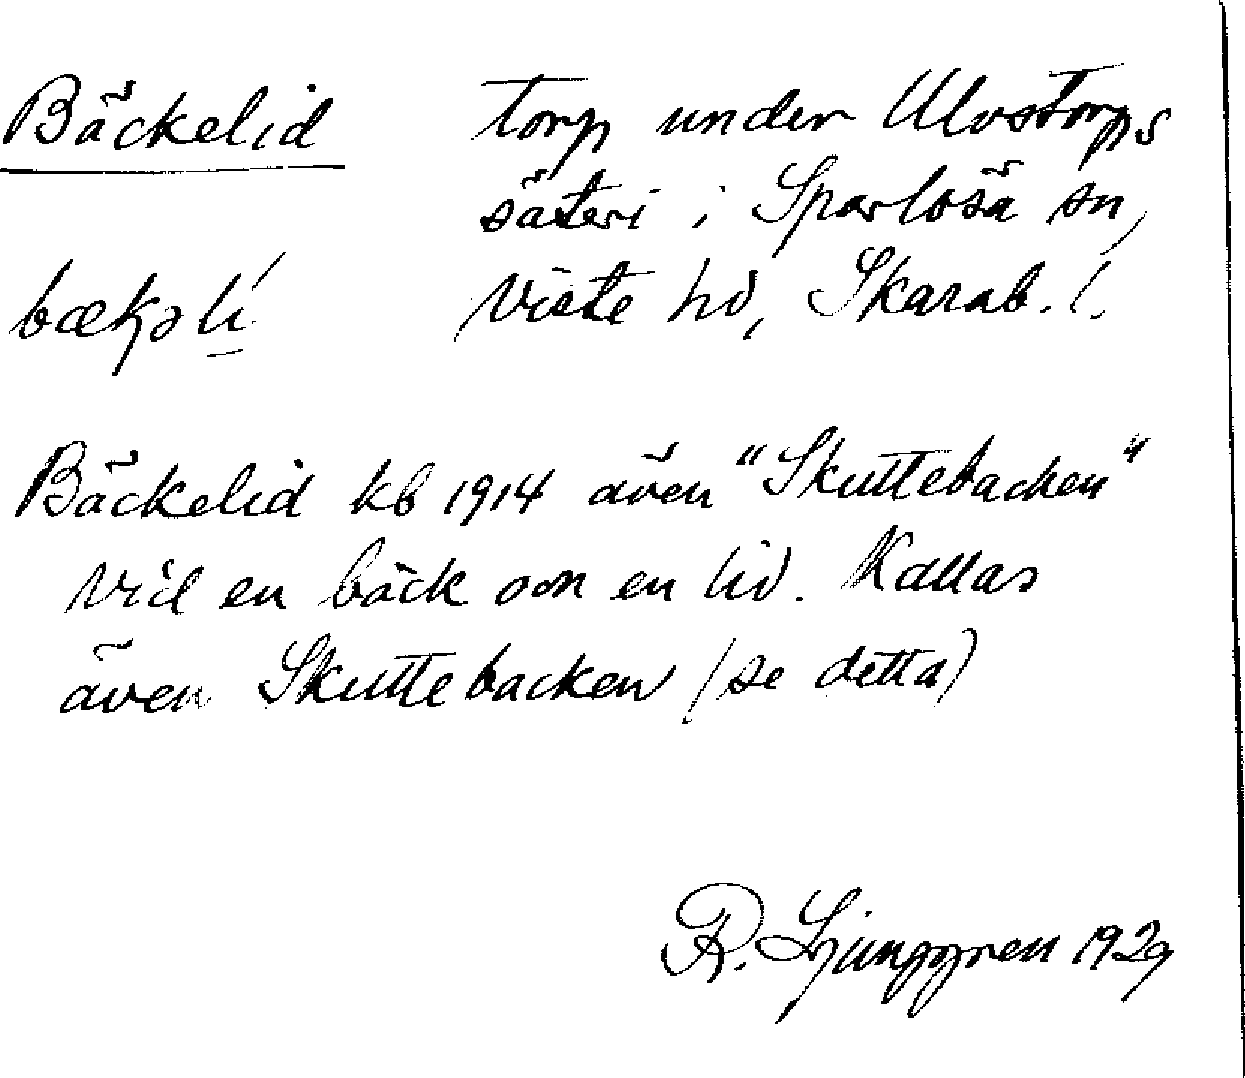 Bäckelid
torp under Ulvstorps
säteri i Sparlösä sn,
Viste hd, Skarab. l.
bækəlí
Bäckelid kb 1914 även "Skuttebacken"
Vid en bäck och en lid. Kallas
även Skuttebacken (se detta)
R. Ljunggren 1929